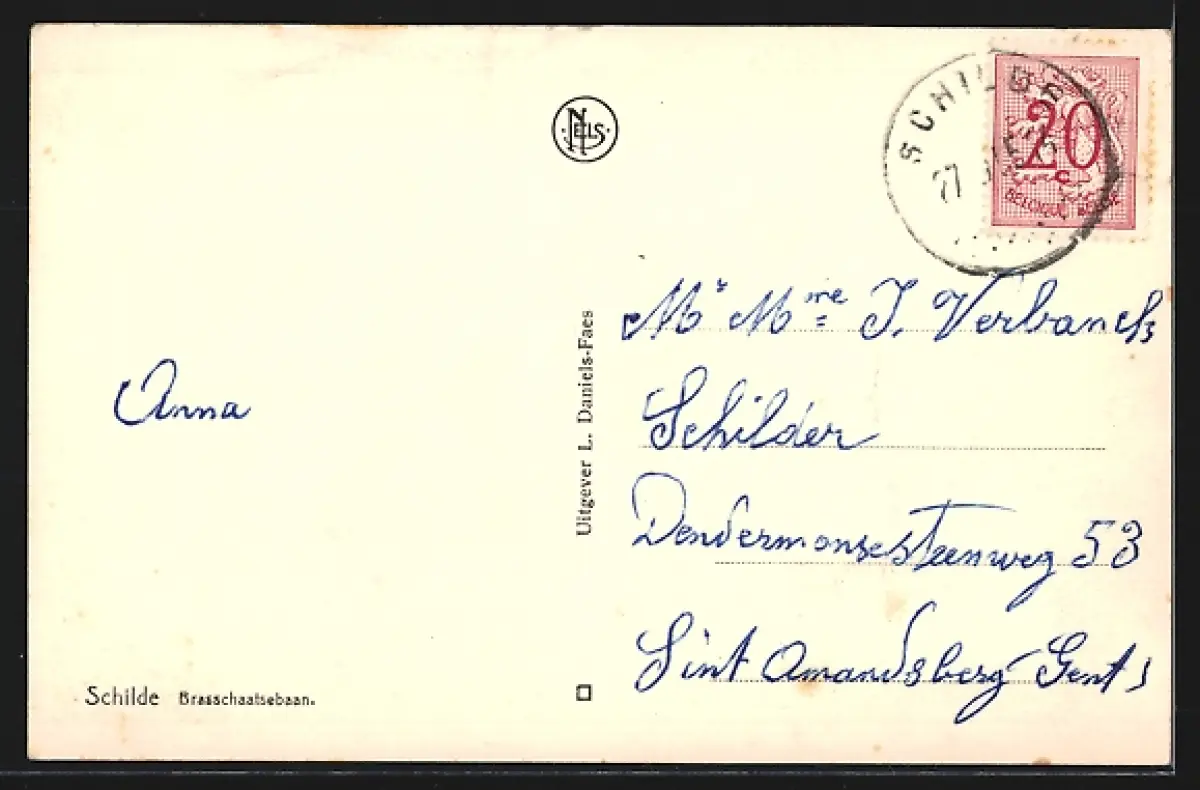 NELS
SCHILDE
20
c
BELGIQUE BELGIË
Anna
Uitgever L. Daniels-Faes
Mr Mme J. Verbanck
Schilder
Dendermonsesteenweg 53
Sint Amandsberg Gent
Schilde Brasschaatsebaan.